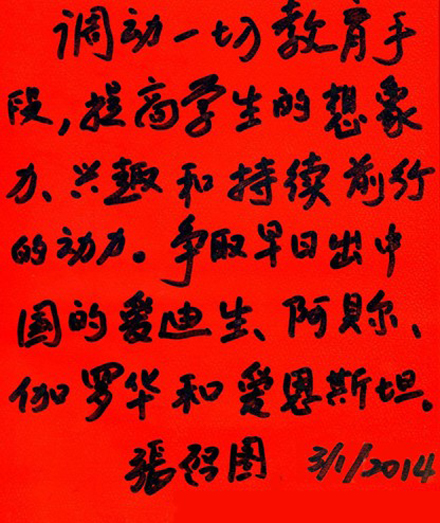 调动一切教育手
段,提高学生的想象
力、兴趣和持续前行
的动力。争取早日出中
国的爱迪生、阿贝尔、
伽罗华和爱恩斯坦。
張 图 3/1/2014